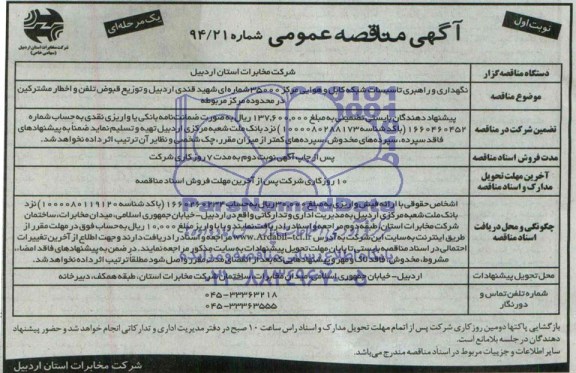 نوبت اول
آگهی مناقصه عمومی شماره ۹۴/۲۱
یک مرحله‌ای
شرکت مخابرات استان اردبیل
(سهامی خاص)
دستگاه مناقصه گزار
شرکت مخابرات استان اردبیل
موضوع مناقصه
نگهداری و راهبری تاسیسات شبکه کابل و هوایی مرکز ۳۵۰۰۰ شماره ای شهید قندی اردبیل و توزیع قبوض تلفن و اخطار مشترکین
در محدوده مرکز مربوطه
تضمین شرکت در مناقصه
پیشنهاد دهندگان بایستی تضمینی به مبلغ ۱۳۷,۶۰۰,۰۰۰ ریال به صورت ضمانت نامه بانکی یا واریز نقدی به حساب شماره
۱۶۶۰۴۶۰۴۵۲ (باکد شناسه ۱۰۰۰۰۰۸۰۲۸۸۱۷۳) نزد بانک ملت شعبه مرکزی اردبیل تهیه و تسلیم نماید ضمنا به پیشنهادهای
فاقد سپرده، سپرده‌های مخدوش، سپرده‌های کمتر از میزان مقرر، چک شخصی و نظایر آن ترتیب اثر داده نخواهد شد.
مدت فروش اسناد مناقصه
پس از چاپ آگهی نوبت دوم به مدت ۷ روز کاری شرکت
آخرین مهلت تحویل
مدارک و اسناد مناقصه
۱۰ روز کاری شرکت پس از آخرین مهلت فروش اسناد مناقصه
چگونگی و محل دریافت
اسناد مناقصه
اشخاص حقوقی با ارائه فیش واریزی به مبلغ ریال به حساب (باکد شناسه ۱۰۰۰۰۰۸۰۱۱۹۱۲۰) نزد
بانک ملت شعبه مرکزی اردبیل به مدیریت اداری و تدارکاتی واقع در اردبیل - خیابان جمهوری اسلامی، میدان مخابرات، ساختمان
شرکت مخابرات استان، طبقه دوم مراجعه و اسناد را دریافت نمایند و یا با واریز مبلغ ۱۰,۰۰۰ ریال به حساب فوق در مهلت مقرر از
طریق اینترنت به سایت این شرکت به آدرس www.Ardabil-tci.ir مراجعه و اسناد را دریافت دارند و جهت اطلاع از آخرین تغییرات
احتمالی در اسناد مناقصه بایستی تا پایان مهلت تحویل پیشنهادات به سایت مذکور مراجعه نمایند. در ضمن به پیشنهادهای فاقد امضاء،
مشروط، مخدوش، فاقد لاک و مهر و پیشنهادهایی که بعد از انقضای مدت مقرر واصل شود مطلقا ترتیب اثر داده نخواهد شد.
محل تحویل پیشنهادات
اردبیل - خیابان جمهوری اسلامی، میدان مخابرات، ساختمان شرکت مخابرات استان، طبقه همکف، دبیرخانه
شماره تلفن تماس و
دورنگار
۰۴۵-۳۳۳۶۳۲۱۸
۰۴۵-۳۳۳۶۳۵۵۵
بازگشایی پاکتها دومین روز کاری شرکت پس از اتمام مهلت تحویل مدارک و اسناد راس ساعت ۱۰ صبح در دفتر مدیریت اداری و تدارکاتی انجام خواهد شد و حضور پیشنهاد
دهندگان در جلسه بلامانع است.
سایر اطلاعات و جزییات مربوط در اسناد مناقصه مندرج می‌باشد.
شرکت مخابرات استان اردبیل